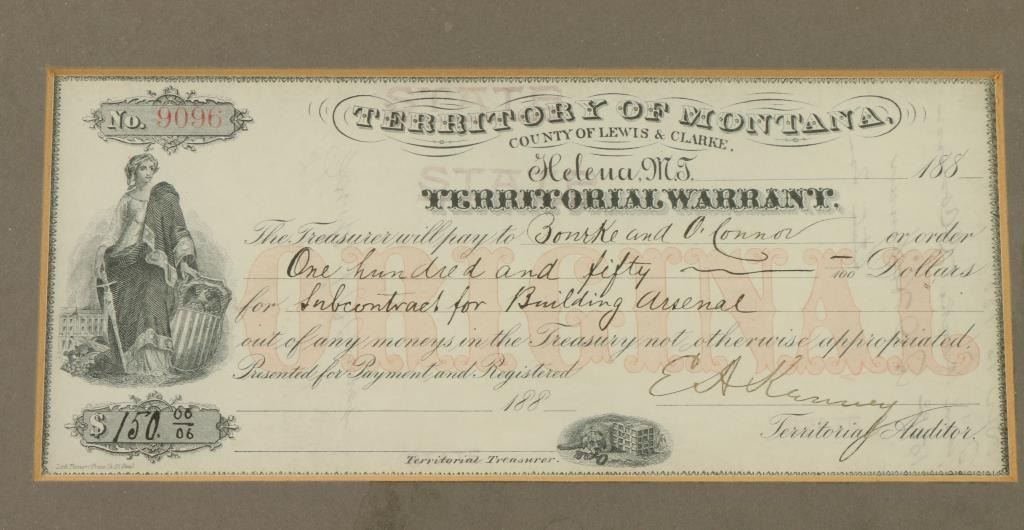 No. 9096
STATE
TERRITORY OF MONTANA,
COUNTY OF LEWIS & CLARKE.
STATE
Helena, M.T. 188
TERRITORIAL WARRANT.
The Treasurer will pay to Bourke and O'Connor or order
One hundred and fifty — /100 Dollars
for Subcontract for Building Arsenal
ORIGINAL
out of any moneys in the Treasury not otherwise appropriated.
Presented for Payment and Registered
E A Kenney
188
Territorial Auditor.
$ 150. 00
Territorial Treasurer.